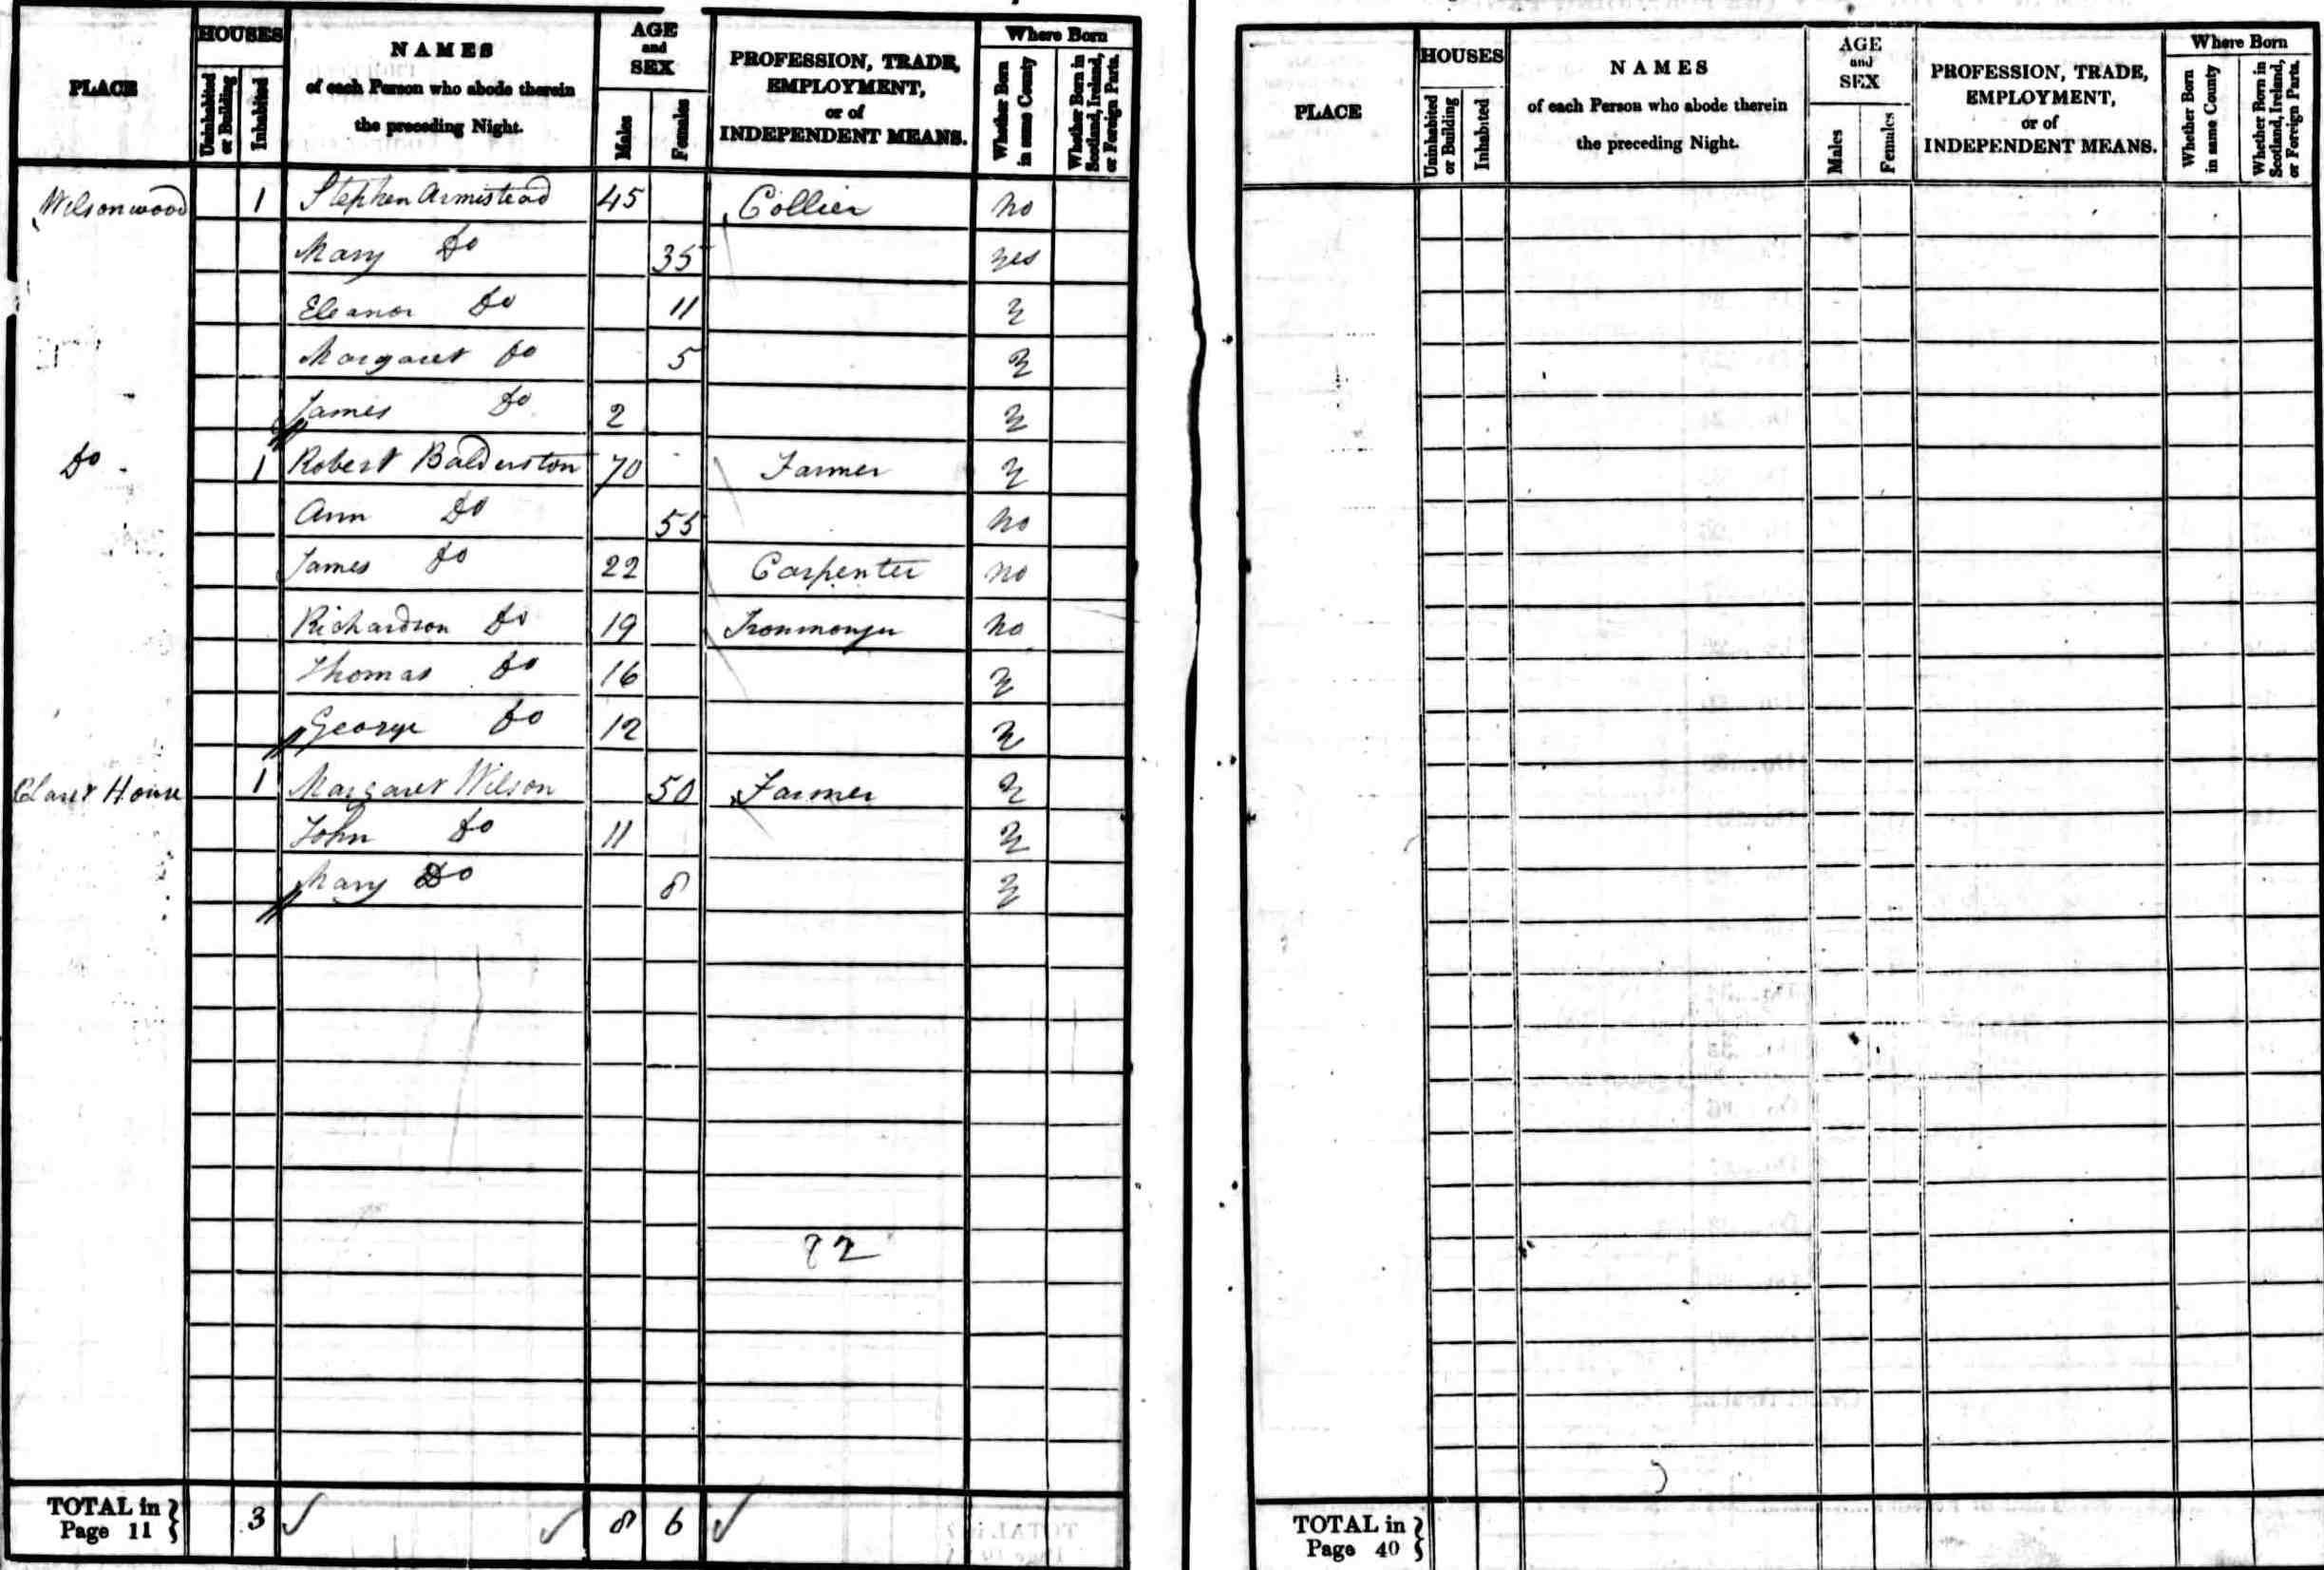 PLACE
HOUSES
Uninhabited or Building
Inhabited
NAMES
of each Person who abode therein
the preceding Night.
AGE
and
SEX
Males
Females
PROFESSION, TRADE,
EMPLOYMENT,
or of
INDEPENDENT MEANS.
Where Born
Whether Born in same County
Whether Born in Scotland, Ireland, or Foreign Parts.
Wilsonwood 1 Stephen Armistead 45 Collier no
Mary Do 35 yes
Eleanor Do 11 y
Margaret Do 5 y
James Do 2 y
Do 1 Robert Balderston 70 Farmer y
Ann Do 55 no
James Do 22 Carpenter no
Richardson Do 19 Ironmonger no
Thomas Do 16 y
George Do 12 y
House 1 Margaret Wilson 50 Farmer y
John Do 11 y
Mary Do 8 y
TOTAL in Page 11 3 8 6
PLACE
HOUSES
Uninhabited or Building
Inhabited
NAMES
of each Person who abode therein
the preceding Night.
AGE
and
SEX
Males
Females
PROFESSION, TRADE,
EMPLOYMENT,
or of
INDEPENDENT MEANS.
Where Born
Whether Born in same County
Whether Born in Scotland, Ireland, or Foreign Parts.
TOTAL in Page 40